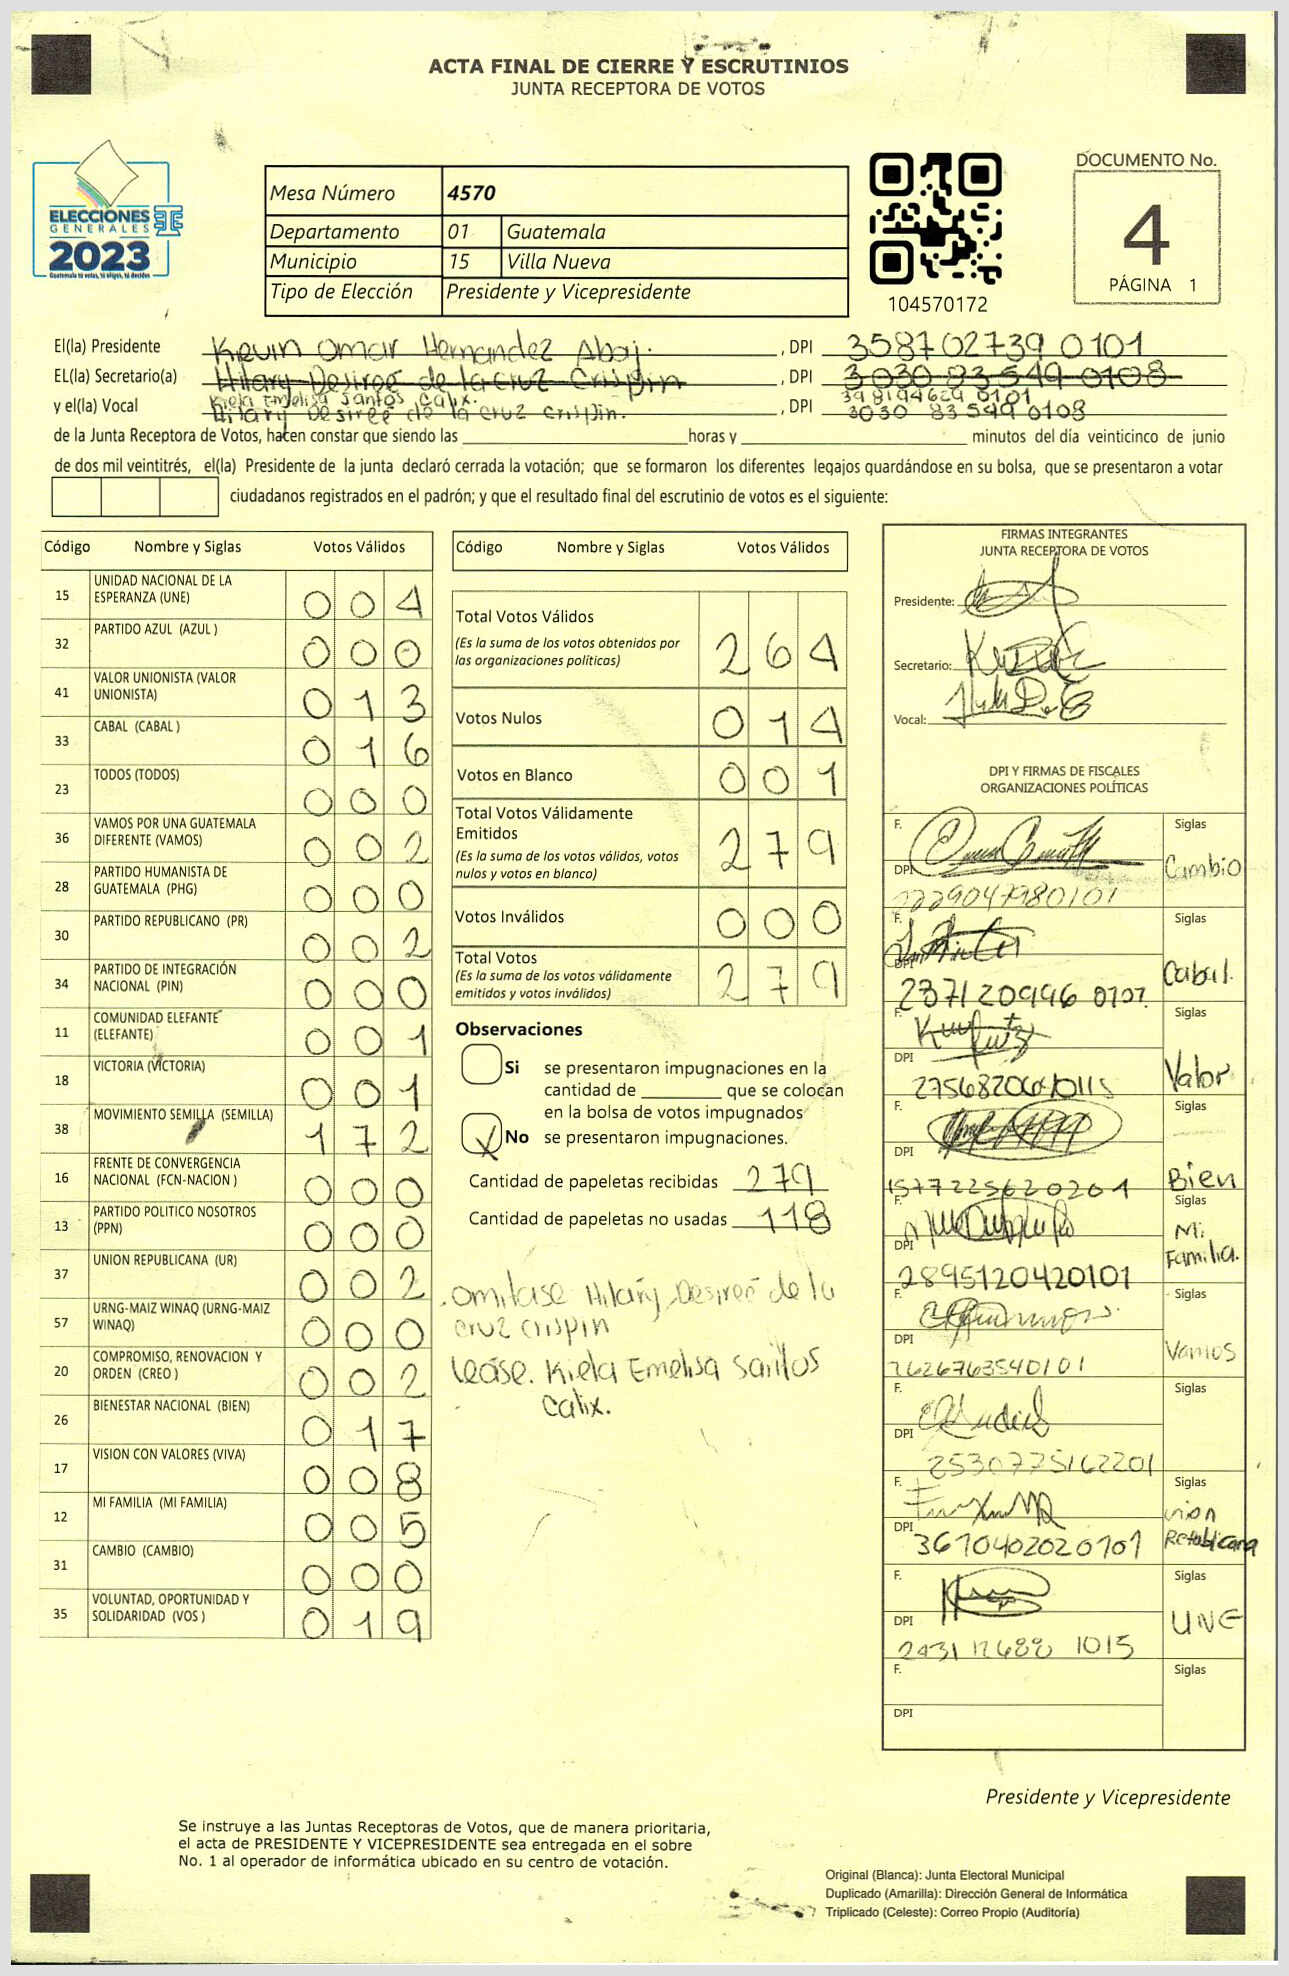 ACTA FINAL DE CIERRE Y ESCRUTINIOS
JUNTA RECEPTORA DE VOTOS
ELECCIONES
GENERALES
2023
Guatemala tú votas, tú eliges, tú decides
Mesa Número 4570
Departamento 01 Guatemala
Municipio 15 Villa Nueva
Tipo de Elección Presidente y Vicepresidente
104570172
DOCUMENTO No.
4
PÁGINA 1
El(la) Presidente Kevin Omar Hernandez Abaj. , DPI 358702739 0101
EL(la) Secretario(a) Hilary Desireé de la cruz Crispin , DPI 3030 83549 0108
Kiela Emelisa Santos Calix. 398194629 0101
y el(la) Vocal Hilary Desireé de la cruz crispin. , DPI 3030 83549 0108
de la Junta Receptora de Votos, hacen constar que siendo las horas y minutos del día veinticinco de junio
de dos mil veintitrés, el(la) Presidente de la junta declaró cerrada la votación; que se formaron los diferentes legajos guardándose en su bolsa, que se presentaron a votar
ciudadanos registrados en el padrón; y que el resultado final del escrutinio de votos es el siguiente:
Código Nombre y Siglas Votos Válidos
15 UNIDAD NACIONAL DE LA ESPERANZA (UNE) 0 0 4
32 PARTIDO AZUL (AZUL ) 0 0 0
41 VALOR UNIONISTA (VALOR UNIONISTA) 0 1 3
33 CABAL (CABAL ) 0 1 6
23 TODOS (TODOS) 0 0 0
36 VAMOS POR UNA GUATEMALA DIFERENTE (VAMOS) 0 0 2
28 PARTIDO HUMANISTA DE GUATEMALA (PHG) 0 0 0
30 PARTIDO REPUBLICANO (PR) 0 0 2
34 PARTIDO DE INTEGRACIÓN NACIONAL (PIN) 0 0 0
11 COMUNIDAD ELEFANTE (ELEFANTE) 0 0 1
18 VICTORIA (VICTORIA) 0 0 1
38 MOVIMIENTO SEMILLA (SEMILLA) 1 7 2
16 FRENTE DE CONVERGENCIA NACIONAL (FCN-NACION ) 0 0 0
13 PARTIDO POLITICO NOSOTROS (PPN) 0 0 0
37 UNION REPUBLICANA (UR) 0 0 2
57 URNG-MAIZ WINAQ (URNG-MAIZ WINAQ) 0 0 0
20 COMPROMISO, RENOVACION Y ORDEN (CREO ) 0 0 2
26 BIENESTAR NACIONAL (BIEN) 0 1 7
17 VISION CON VALORES (VIVA) 0 0 8
12 MI FAMILIA (MI FAMILIA) 0 0 5
31 CAMBIO (CAMBIO) 0 0 0
35 VOLUNTAD, OPORTUNIDAD Y SOLIDARIDAD (VOS ) 0 1 9
Código Nombre y Siglas Votos Válidos
Total Votos Válidos 2 6 4
(Es la suma de los votos obtenidos por
las organizaciones políticas)
Votos Nulos 0 1 4
Votos en Blanco 0 0 1
Total Votos Válidamente
Emitidos 2 7 9
(Es la suma de los votos válidos, votos
nulos y votos en blanco)
Votos Inválidos 0 0 0
Total Votos 2 7 9
(Es la suma de los votos válidamente
emitidos y votos inválidos)
Observaciones
Si se presentaron impugnaciones en la
cantidad de que se colocan
en la bolsa de votos impugnados
X No se presentaron impugnaciones.
Cantidad de papeletas recibidas 279
Cantidad de papeletas no usadas 118
omitase Hilary Desireé de la
cruz crispin
Lease. Kiela Emelisa Santos
Calix.
FIRMAS INTEGRANTES
JUNTA RECEPTORA DE VOTOS
Presidente:
Secretario:
Vocal:
DPI Y FIRMAS DE FISCALES
ORGANIZACIONES POLÍTICAS
F. Siglas
DPI Cambio
2229047980101
F. Siglas
DPI Cabal.
237120996 0707.
F. Siglas
DPI Valor
F. Siglas
DPI Bien
1577225620201
F. Siglas
DPI Mi Familia.
2895120420101
F. Siglas
DPI Vamos
2626763540101
F. Siglas
DPI
2530775162201
F. Siglas
DPI union Republicana
3670402020101
F. Siglas
DPI UNE
F. Siglas
DPI
Presidente y Vicepresidente
Se instruye a las Juntas Receptoras de Votos, que de manera prioritaria,
el acta de PRESIDENTE Y VICEPRESIDENTE sea entregada en el sobre
No. 1 al operador de informática ubicado en su centro de votación.
Original (Blanca): Junta Electoral Municipal
Duplicado (Amarilla): Dirección General de Informática
Triplicado (Celeste): Correo Propio (Auditoría)